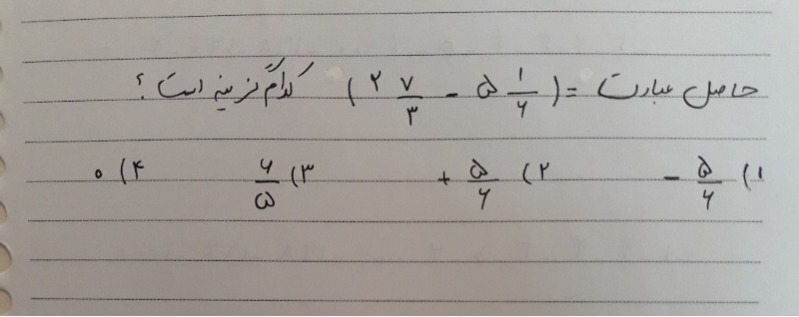 حاصل عبارت = (۲ ۷/۳ - ۵ ۱/۶) کدام گزینه است؟
۱) - ۵/۶ ۲) + ۵/۶ ۳) ۶/۵ ۴) ۰